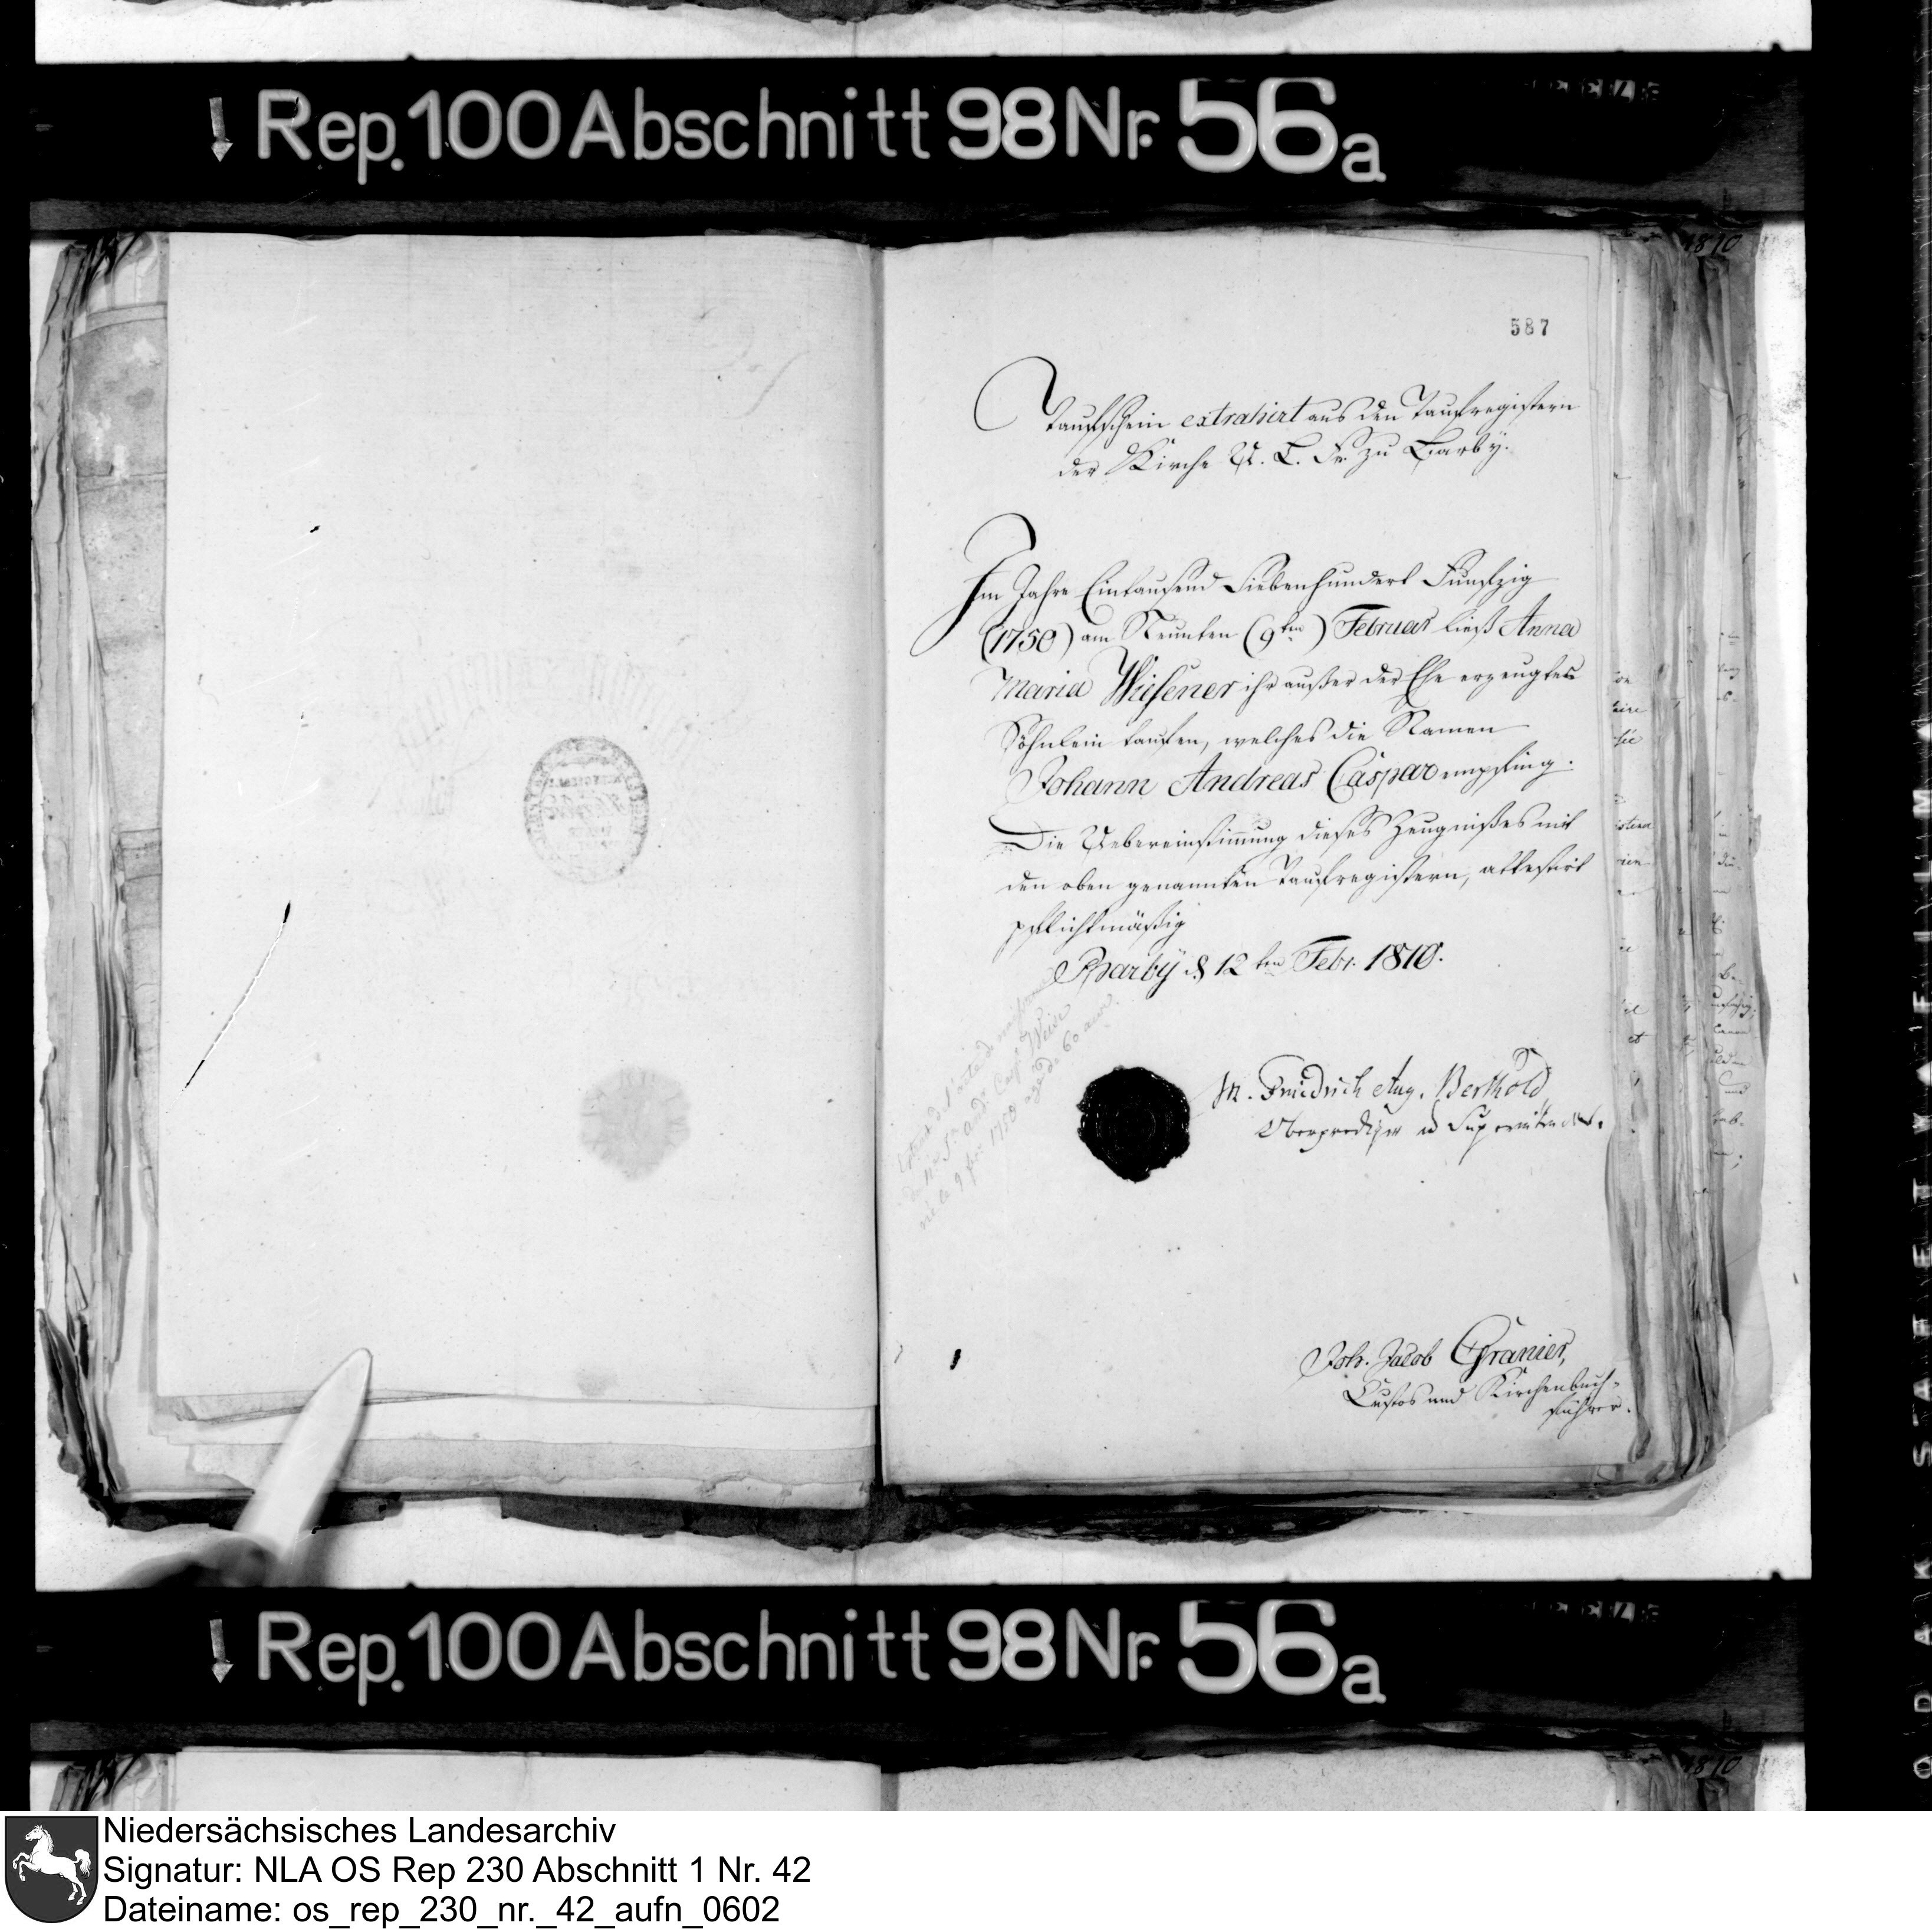 Rep. 100 Abschnitt 98 Nr. 56a
1810
587
Taufschein extrahirt aus den Taufregistern
der Kirche U. L. Fr. zu Barby.
Im Jahre Eintausend Siebenhundert Funfzig
(1750) am Neunten (9ten) Februar ließ Anna
Maria Wiesener ihr außer der Ehe erzeugtes
Söhnlein taufen, welches die Namen
Johann Andreas Caspar empfing.
Die Uebereinstimmung dieses Zeugnißes mit
den oben genannten Taufregistern, attestirt
pflichtmäßig
Barby d 12ten Febr. 1810.
M. Friedrich Aug. Berthold
Oberprediger u Superintendent.
Joh. Jacob Granier,
Custos und Kirchenbuch-
führer.
Rep. 100 Abschnitt 98 Nr. 56a
1810
Niedersächsisches Landesarchiv
Signatur: NLA OS Rep 230 Abschnitt 1 Nr. 42
Dateiname: os_rep_230_nr._42_aufn_0602